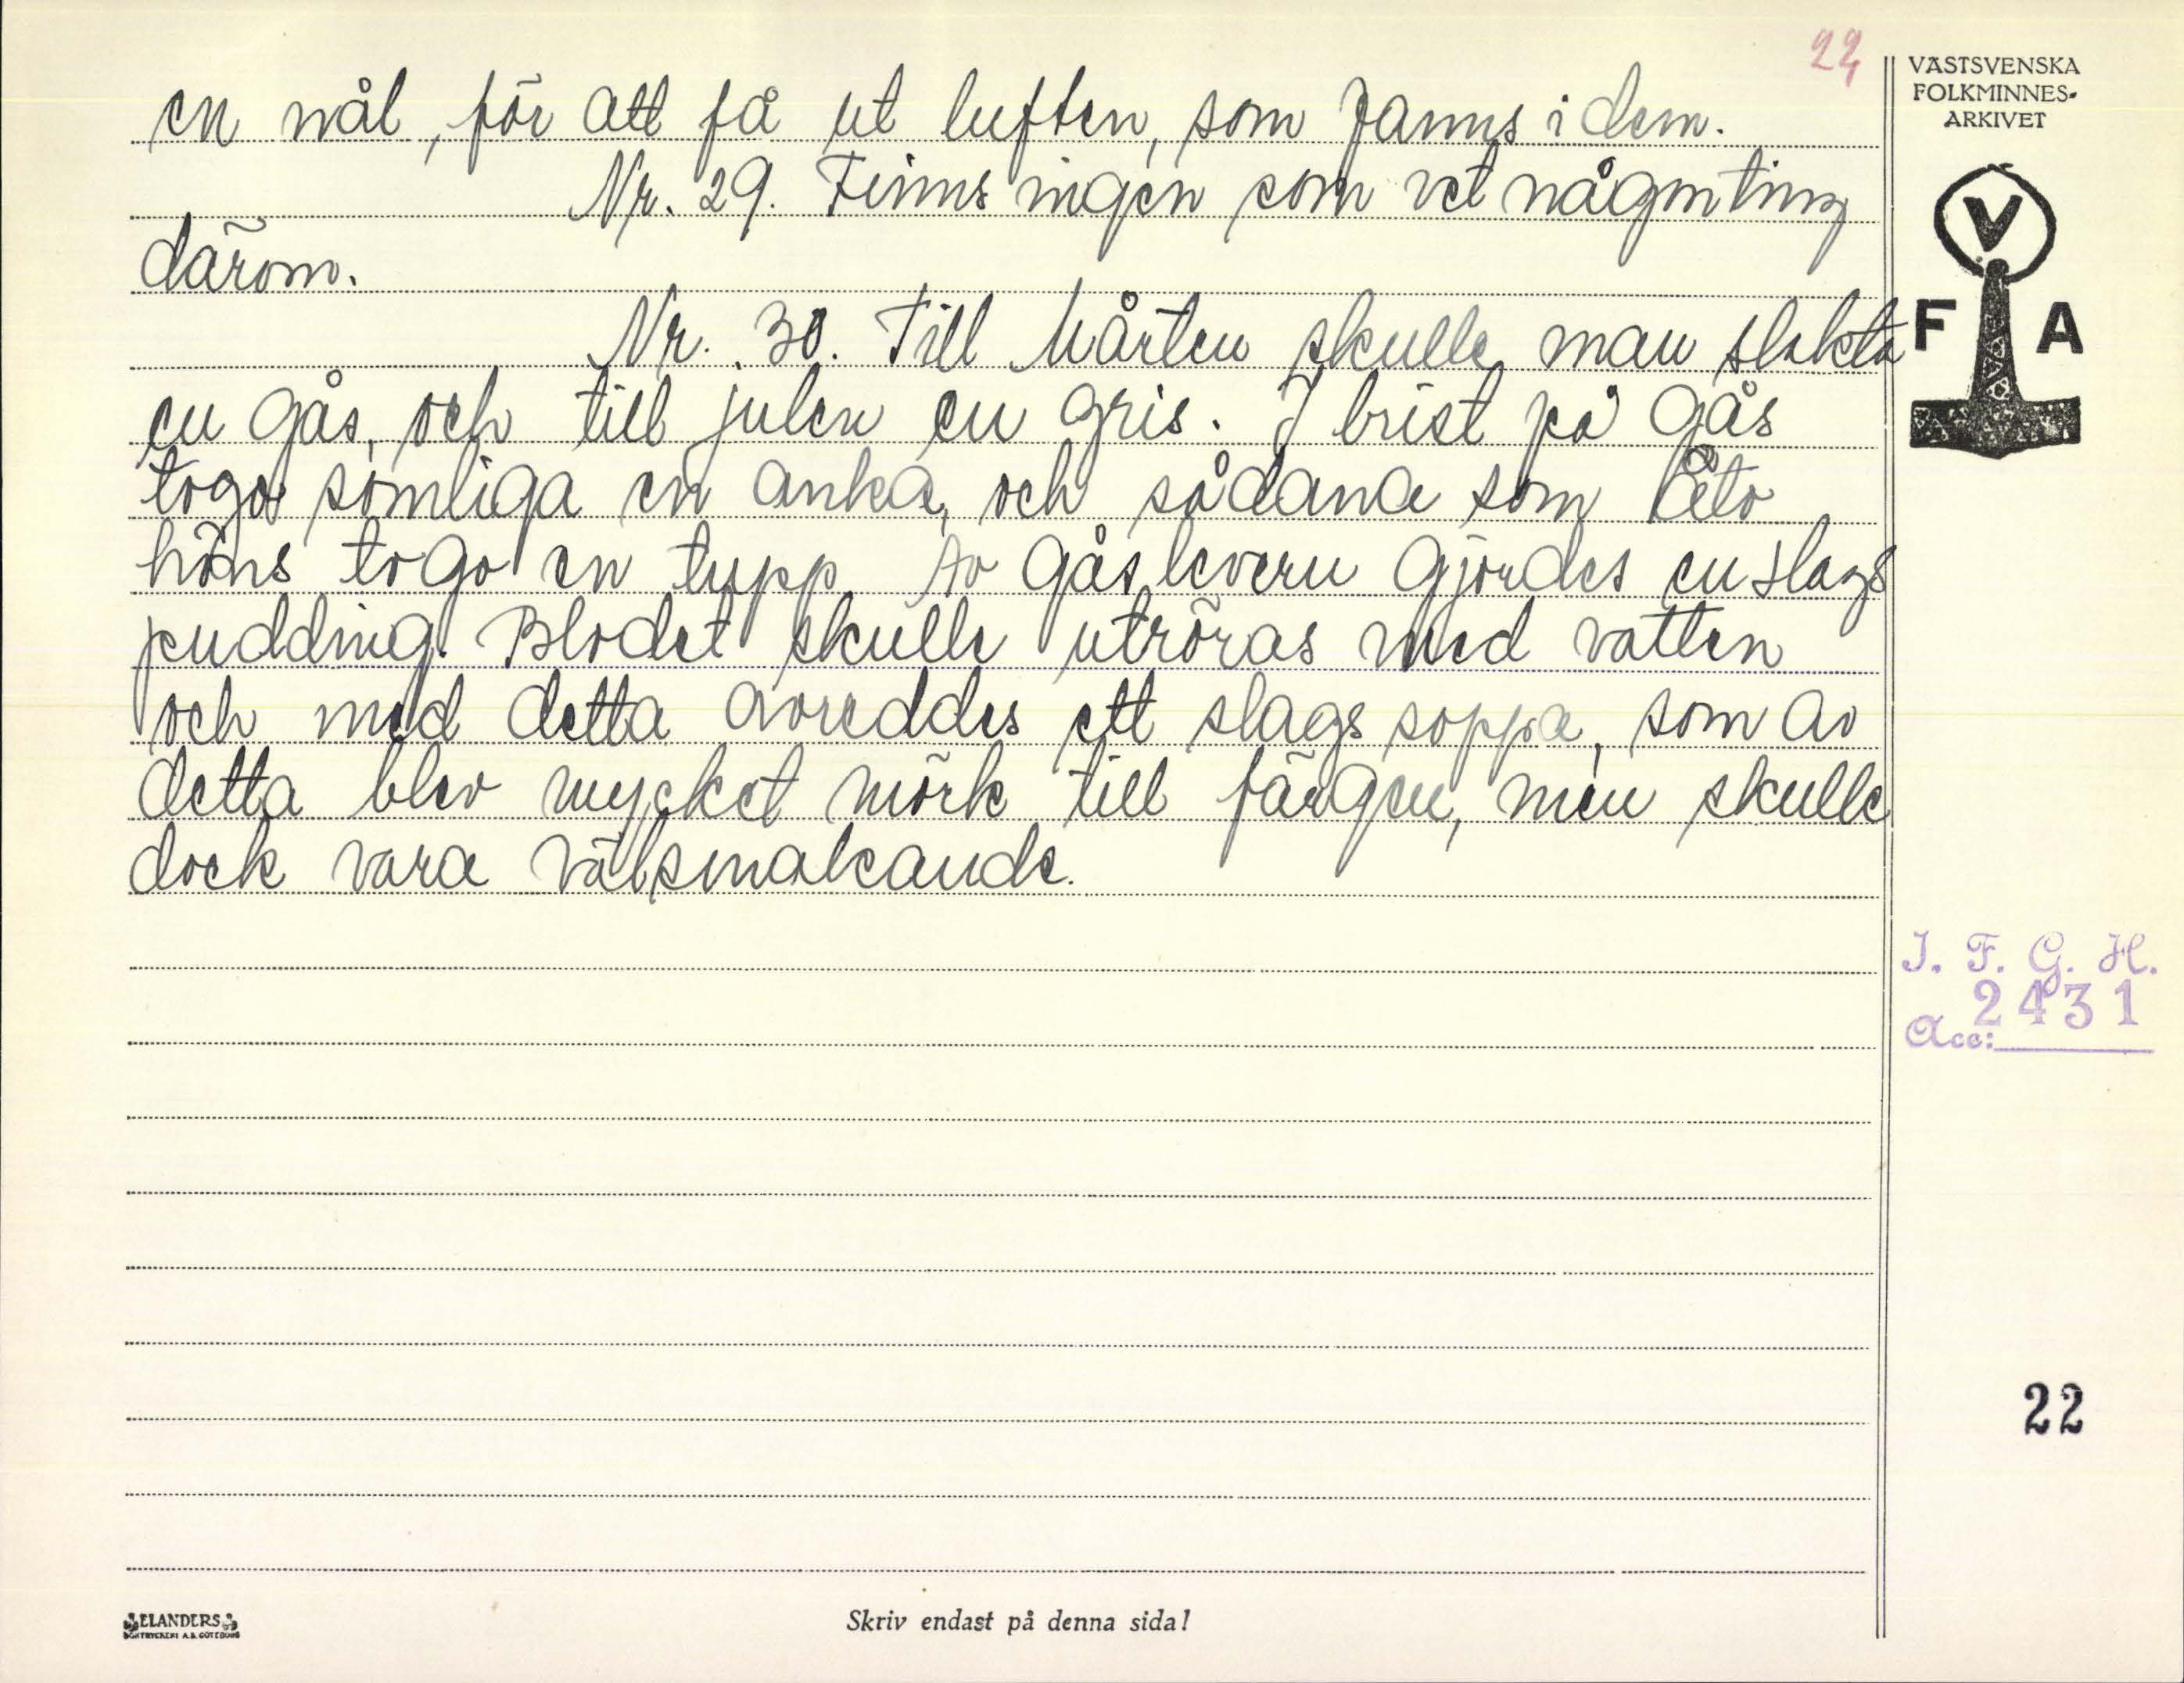 22
VÄSTSVENSKA
FOLKMINNES-
ARKIVET
V
F A
en nål, för att få ut luften, som fanns i dem.
Nr. 29. Finns ingen som vet någonting
därom.
Nr. 30. Till Mårten skulle man slakta
en gås, och till julen en gris. I brist på gås
togo somliga en anka, och sådana som åto
höns togo en tupp. Av gåslevern gjordes en slags
pudding. Blodet skulle utröras med vatten
och med detta avreddes ett slags soppa, som av
detta blev mycket mörk till färgen, men skulle
dock vara välsmakande.
I. F. G. H.
2431
Acc:
22
ELANDERS
BOKTRYCKERI A.B. GÖTEBORG
Skriv endast på denna sida!